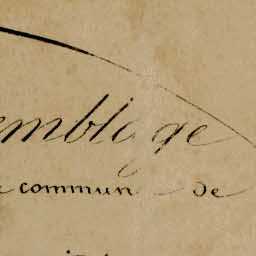 emblage
commun de